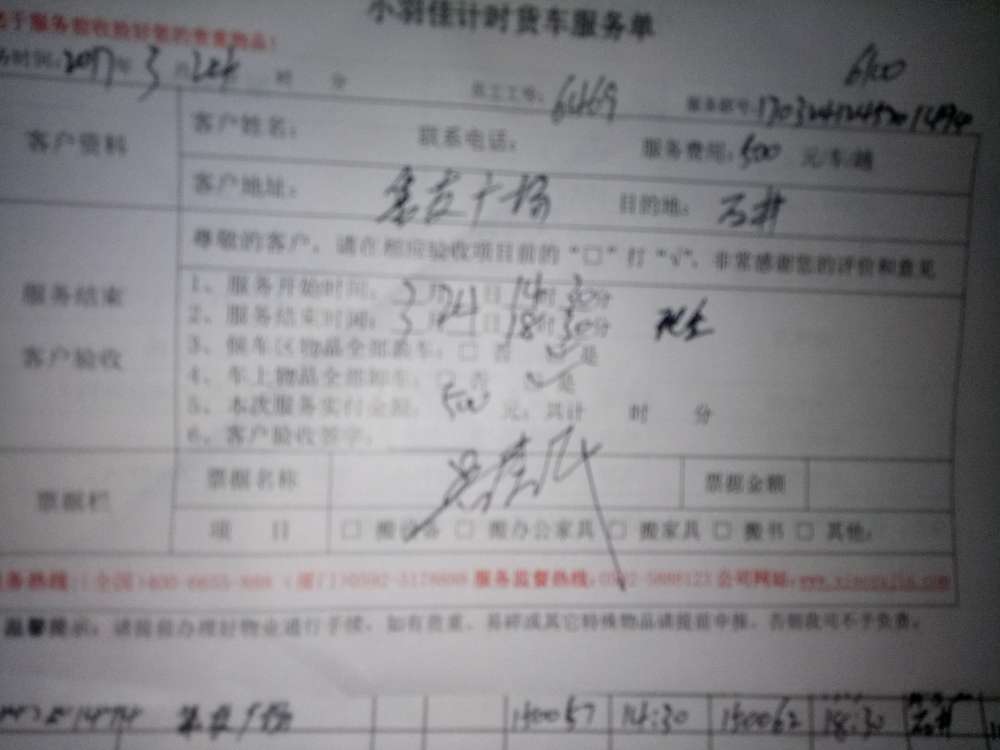 小羽佳计时货车服务单
于服务验收验好您的贵重物品!
务时间:2017年3月24日 时 分 员工工号:6469 6100
服务账号:
客户资料 客户姓名: 联系电话: 服务费用:500 元/车/趟
客户地址: 目的地:
尊敬的客户,请在相应验收项目前的“□”打“√”,非常感谢您的评价和意见
服务结束
客户验收
1、服务开始时间:3月24日14时30分
2、服务结束时间:3月24日18时30分
3、候车区物品全部装车:□ 否 ☑ 是
4、车上物品全部卸车:□ 否 ☑ 是
5、本次服务实付金额:500 元,共计 时 分
6、客户验收签字:
票据栏 票据名称 票据金额
项 目 □ 搬设备 □ 搬办公家具 □ 搬家具 □ 搬书 □ 其他:
服务监督热线: 公司网址:
温馨提示:请提前办理好物业通行手续,如有贵重、易碎或其它特殊物品请提前申报,否则我司不予负责。
150057 14:30 150062 18:30